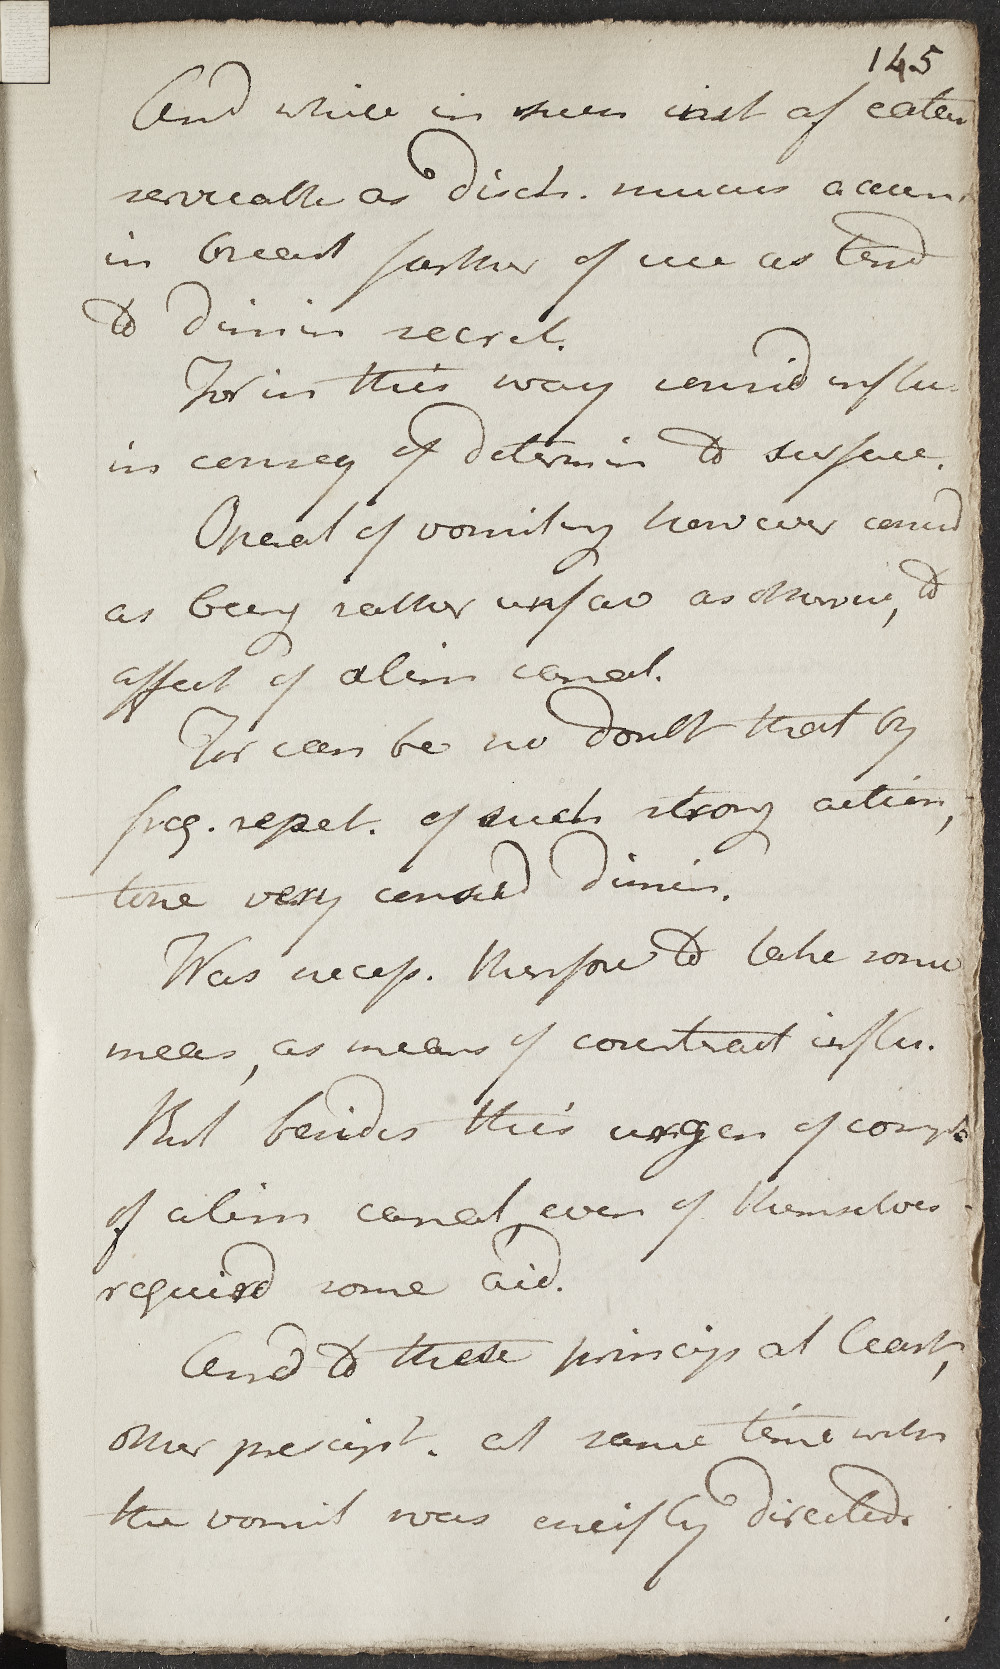 145
And while in such inst of catar
serviceable as disch. mucus accum
in breast farther of use as tend
to dimin secret.
For in this way consid influ
in conseq of determin to surface.
Operat of vomiting however consid
as being rather unfav as otherwise, to
affect of alim canal.
For can be no doubt that by
freq. repet. of such strong action,
tone very consid dimin.
Was necess. therefore to take some
meas, as means of counteract influ.
But besides this urgen of comp
of alim canal even of themselves
requird some aid.
And to these princip at least,
other prescript. at same time with
the vomit was chiefly directed.